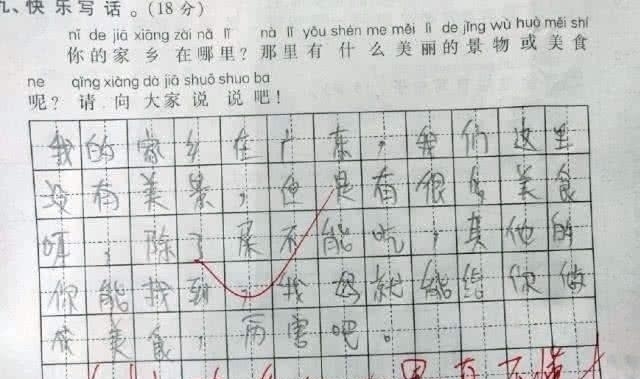 九、快乐写话。(18分)
nǐ de jiā xiāng zài nǎ lǐ nà lǐ yǒu shén me měi lì de jǐng wù huò měi shí
你的家乡在哪里?那里有什么美丽的景物或美食
ne qǐng xiàng dà jiā shuō shuo ba
呢?请向大家说说吧!
我的家乡在广东,我们这里
没有美景,但是有很多美食
呀,除了屎不能吃,其他的
你能找到,我妈就能给你做
成美食,厉害吧。